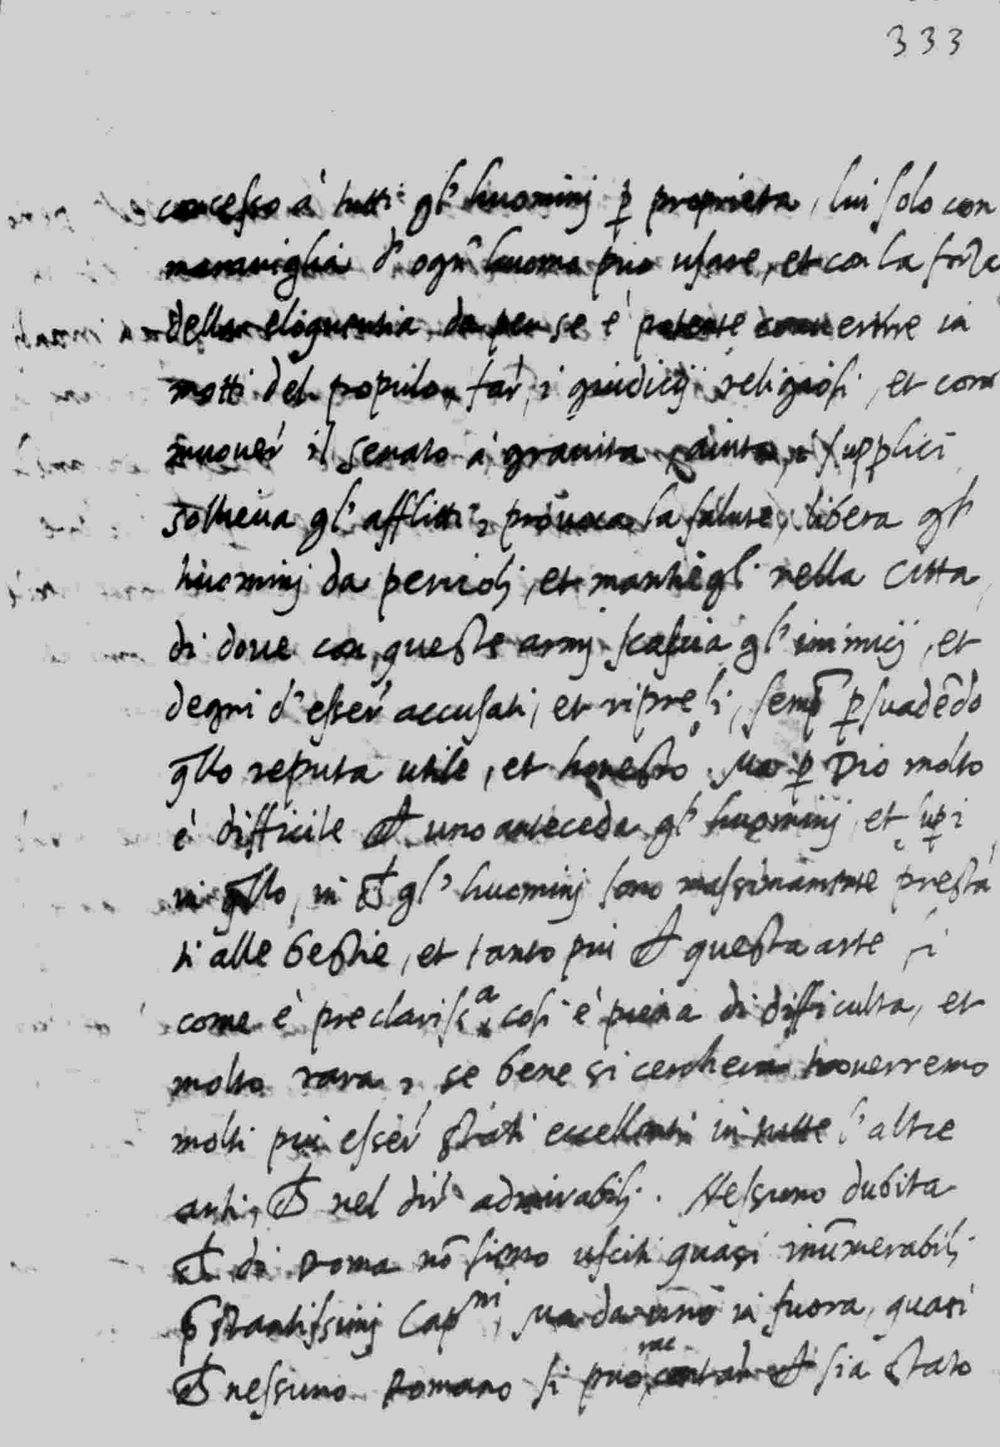 333
concesso à tutti gl' huominj p̱ proprieta, lui solo con
maraviglia d' ogn' huomo può usare, et con la forza
della eloquentia da per se è potente convertire i
motti del populo, far i giudicij religiosi, et com
muover il senato à gravita, aiuta i supplici
solleva gl' afflitti, provoca la salute, libera gl'
huominj da pericolj, et mantiēgl' nella Citta,
di dove con queste armj scascia gl' inimicij, et
degni d' esser accusati, et ripresi, semp̄ p̱suadēdo
q̄llo reputa utile, et honesto. Ma p̱ Dio molto
è difficile ch' uno anteceda gl' huominij et sup̱i
in q̄llo, in ch' gl' huominj sono massimamente presta
ti alle bestie, et tanto piu ch' questa arte si
come è preclariss.ᵃ cosi è piena di difficulta, et
molto rara, se bene si cercherà troverremo
molti piu esser stati eccellenti in tutte l' altre
arti, ch' nel dir admirabilj. Nessuno dubita
ch' di Roma nō sieno usciti quasi inūmerabilj
p̄stantissimj Capⁿⁱ, Ma da uno in fuora, quasi
ch' nessuno Romano si può contar ch' sia stato